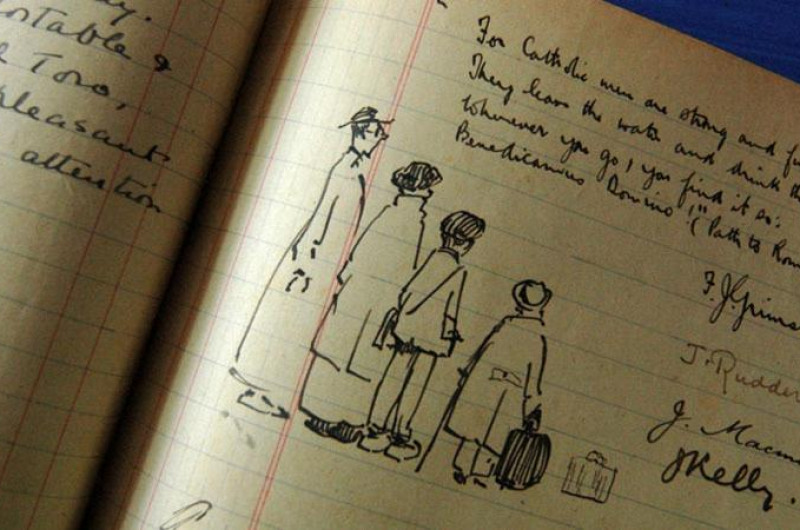 ay.
ortable &
Toro,
pleasant
attention
For Catholic men are strong and f
They leave the water and drink th
Wherever you go, you find it so:
Benedicamus Domino!" (Path to Rom
F. J. Grims
J. Rudder
J. Macm
J Kelly.